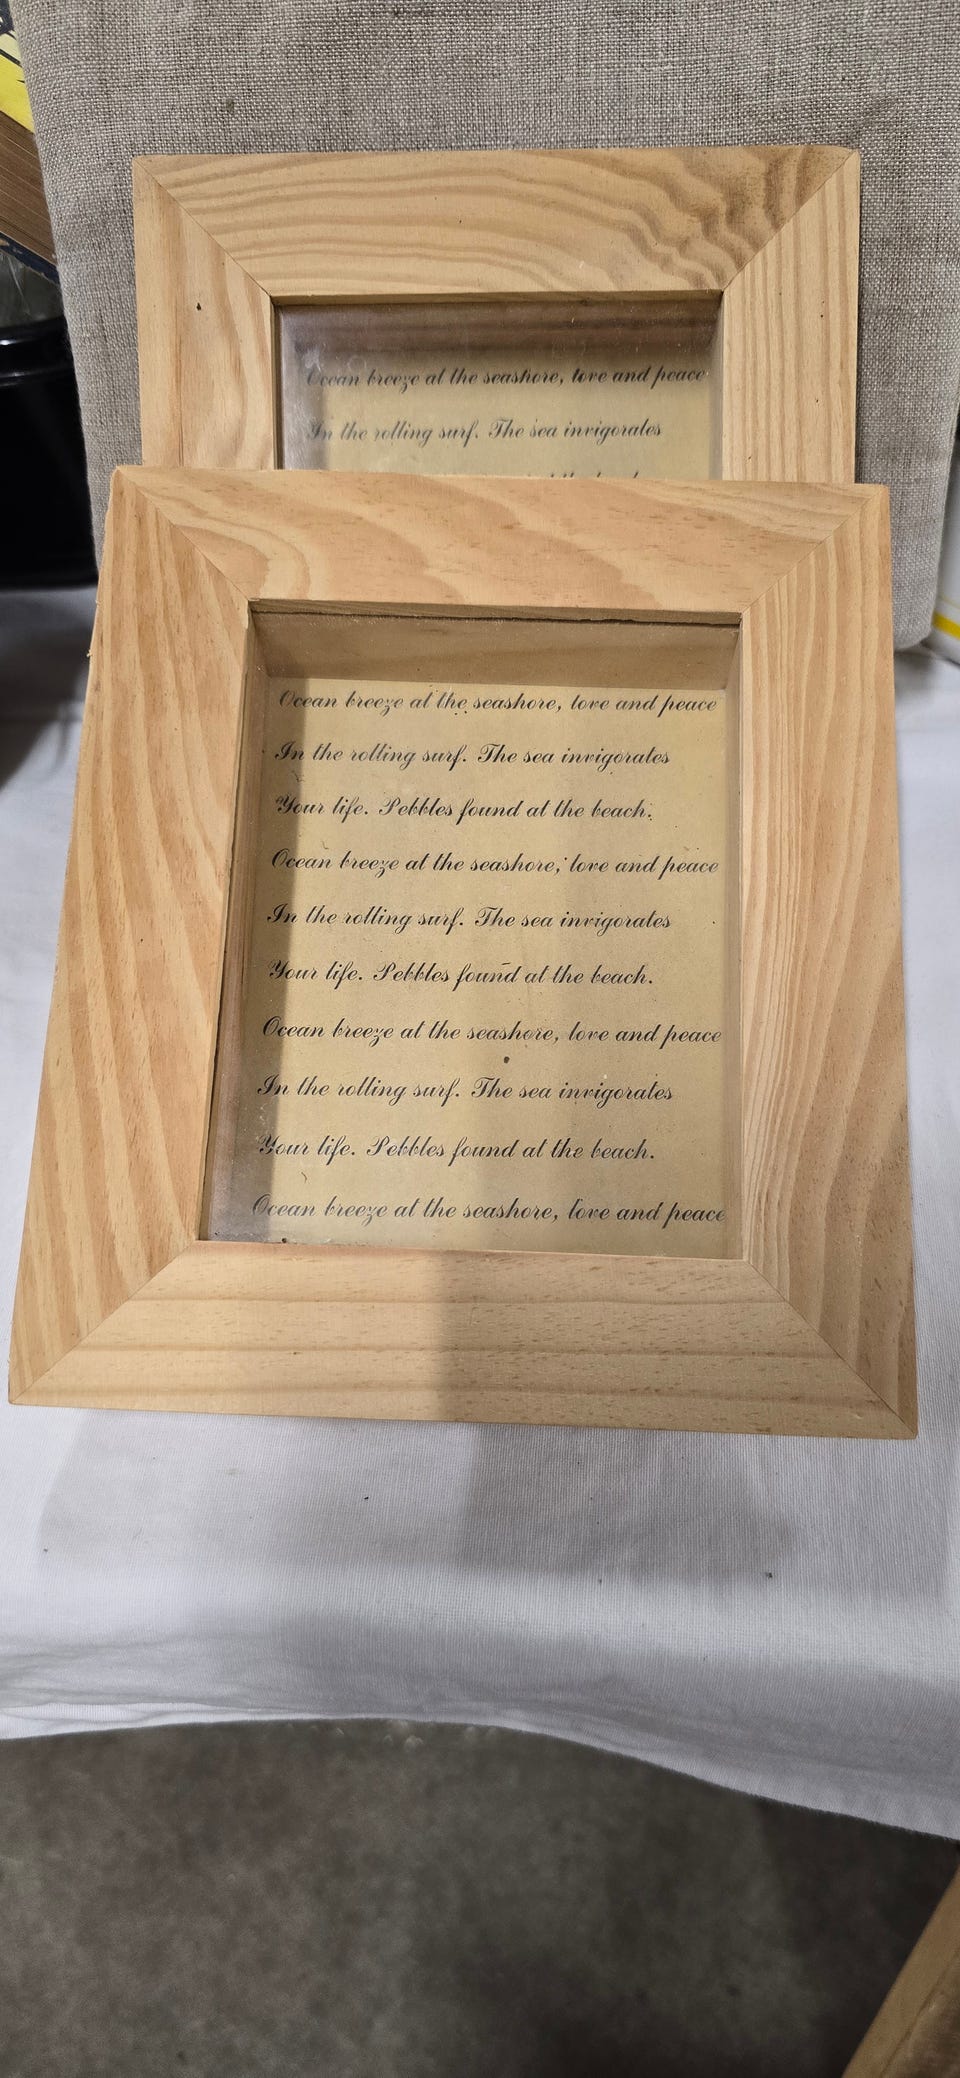 Ocean breeze at the seashore, love and peace
In the rolling surf. The sea invigorates
Ocean breeze at the seashore, love and peace
In the rolling surf. The sea invigorates
Your life. Pebbles found at the beach.
Ocean breeze at the seashore, love and peace
In the rolling surf. The sea invigorates
Your life. Pebbles found at the beach.
Ocean breeze at the seashore, love and peace
In the rolling surf. The sea invigorates
Your life. Pebbles found at the beach.
Ocean breeze at the seashore, love and peace